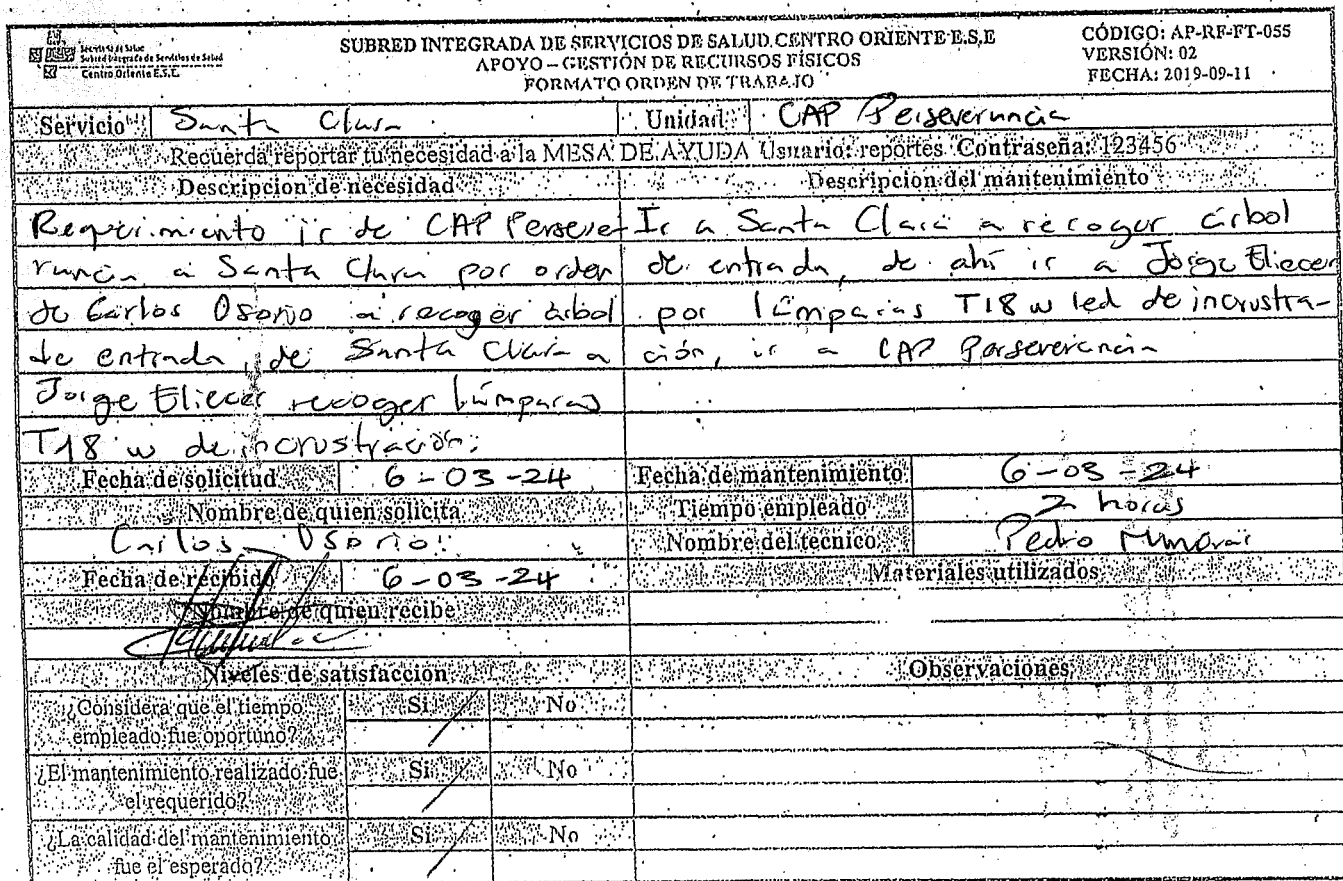 Secretaría de Salud
Subred Integrada de Servicios de Salud
Centro Oriente E.S.E.
SUBRED INTEGRADA DE SERVICIOS DE SALUD CENTRO ORIENTE E.S.E
APOYO – GESTIÓN DE RECURSOS FÍSICOS
FORMATO ORDEN DE TRABAJO
CÓDIGO: AP-RF-FT-055
VERSIÓN: 02
FECHA: 2019-09-11
Servicio Santa Clara Unidad CAP Perseverancia
Recuerda reportar tu necesidad a la MESA DE AYUDA Usuario: reportes Contraseña: 123456
Descripcion de necesidad
Requerimiento ir de CAP Perseve
rancia a Santa Clara por orden
de Carlos Osorio a recoger árbol
de entrada, de Santa Clara a
Jorge Eliecer recoger lámparas
T18 w de incrustración.
Descripcion del mantenimiento
Ir a Santa Clara a recoger árbol
de entrada, de ahí ir a Jorge Eliecer
por lámparas T18 w led de incrustra-
ción, ir a CAP Perseverancia
Fecha de solicitud 6-03-24 Fecha de mantenimiento 6-03-24
Nombre de quien solicita Tiempo empleado 2 horas
Carlos Osorio Nombre del técnico Pedro
Fecha de recibido 6-03-24 Materiales utilizados
Nombre de quien recibe
Niveles de satisfacción Observaciones
¿Considera que el tiempo Si No
empleado fue oportuno? /
¿El mantenimiento realizado fue Si No
el requerido? /
¿La calidad del mantenimiento Si No
fue el esperado? /